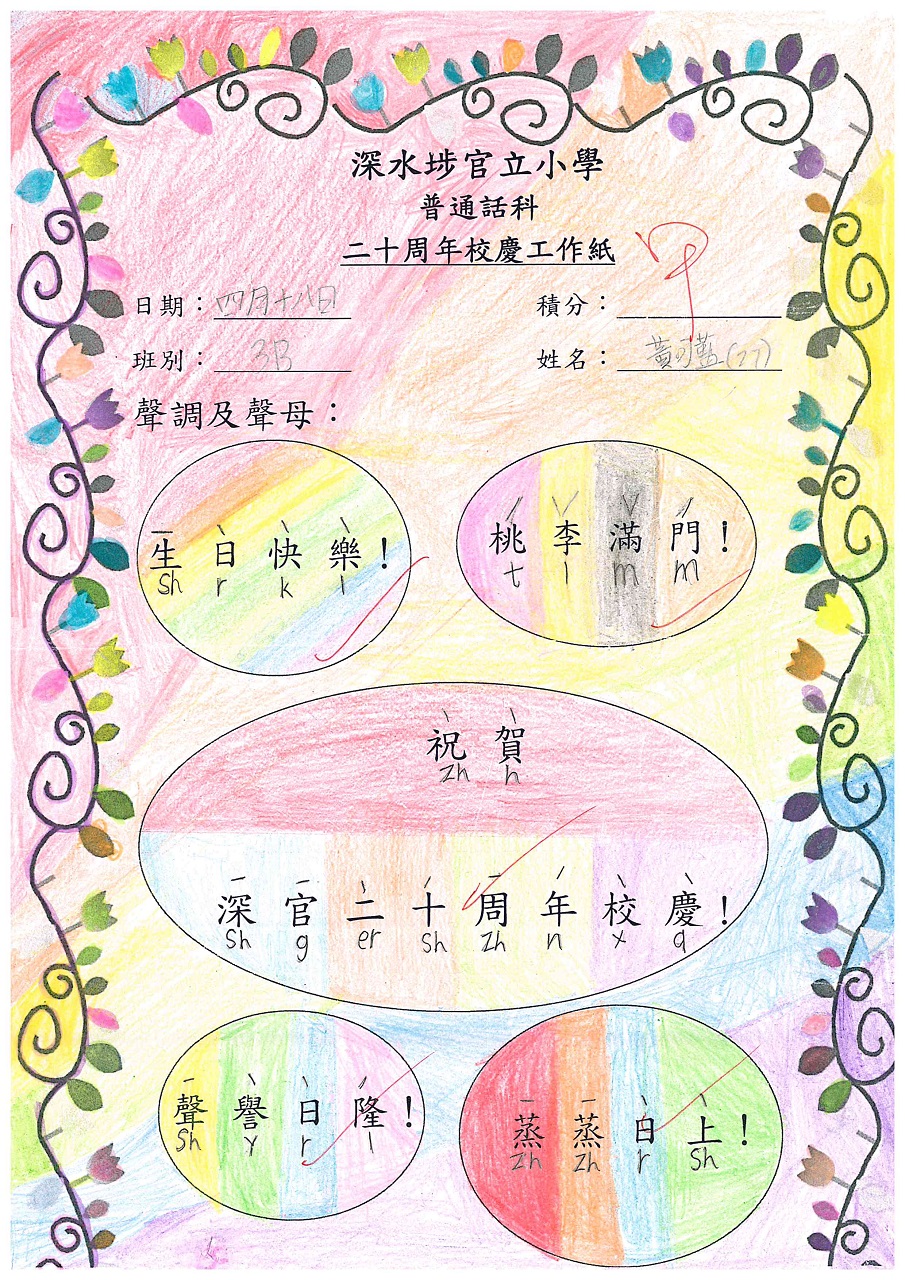 深水埗官立小學
普通話科
二十周年校慶工作紙
甲
日期：四月十八日 積分：
班別：3B 姓名：黃可藍(27)
聲調及聲母：
生日快樂！
sh r k l
桃李滿門！
t l m m
祝賀
zh h
深官二十周年校慶！
sh g er sh zh n x q
聲譽日隆！
sh y r l
蒸蒸日上！
zh zh r sh